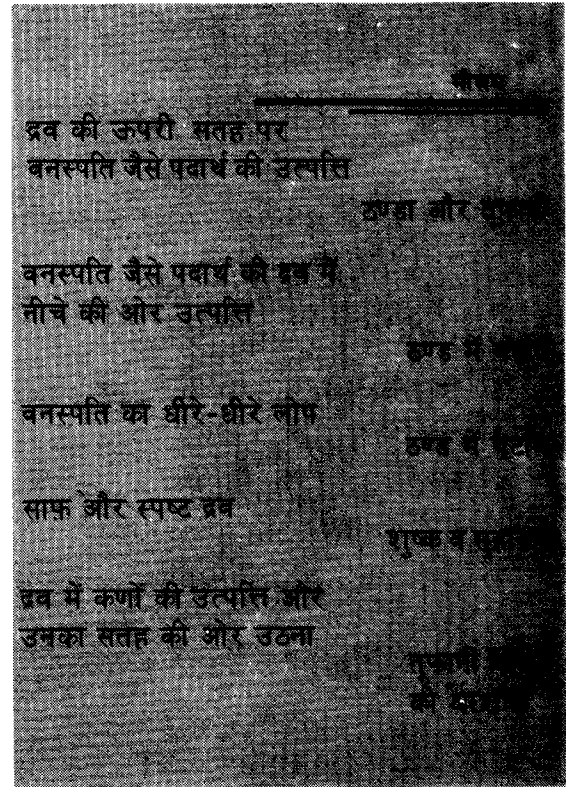 मौसम
द्रव की ऊपरी सतह पर
वनस्पति जैसे पदार्थ की उत्पत्ति
ठण्डा और
वनस्पति जैसे पदार्थ की द्रव में
नीचे की ओर उत्पत्ति
ठण्ड में
वनस्पति का धीरे-धीरे लोप
ठण्ड में
साफ़ और स्पष्ट द्रव
शुष्क व
द्रव में कणों की उत्पत्ति और
उनका सतह की ओर उठना
तूफ़ानी
की